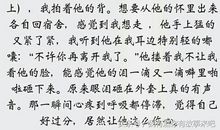 上），我拍着他的背。想要从他的怀里出来
各自回宿舍，感觉到我想走，他手上猛的
又紧了紧，我听到他在我耳边特别轻的嘟
囔：“不许你再离开我了。”他搂着我不让我
看他的脸，能感觉他的泪一滴又一滴噼里啪
啦砸下来。原来眼泪砸在外套上真的有声
音。那一瞬间心疼到呼吸都停滞，觉得自己
好过分，居然让他这么伤心